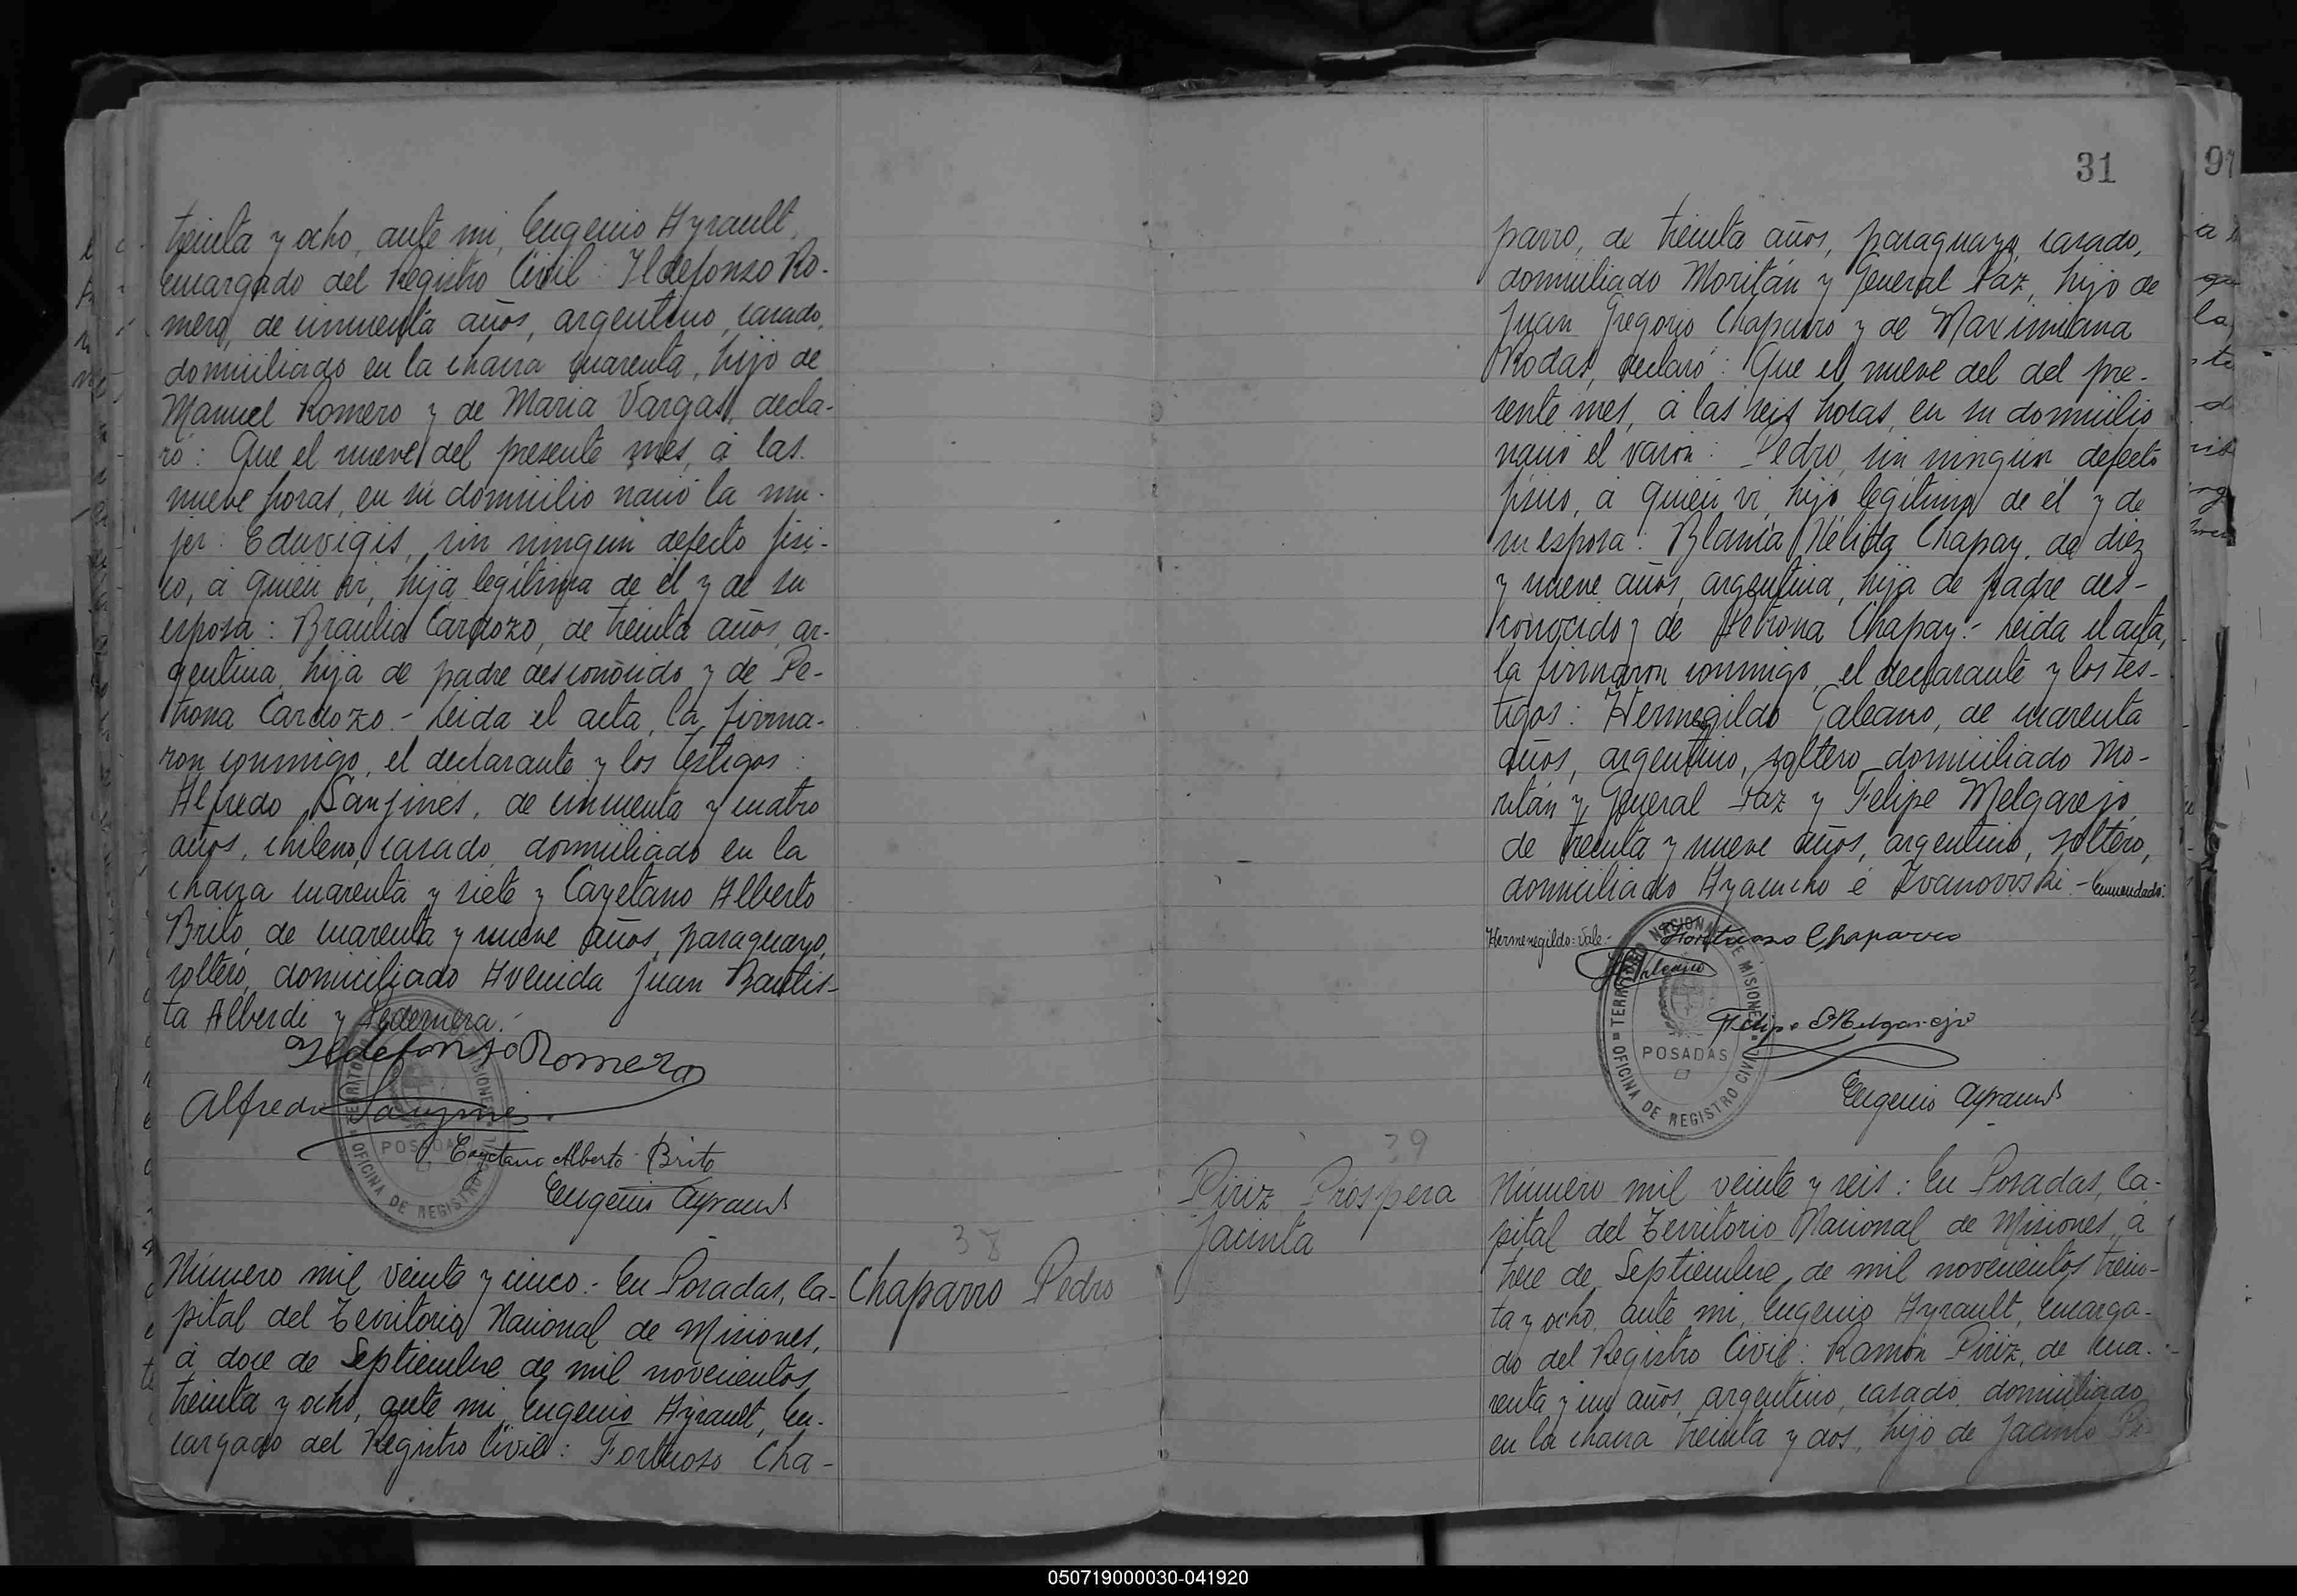 treinta y ocho, ante mi, Eugenio Ayrault,
encargado del Registro Civil: Ildefonso Ro-
mero, de cincuenta años, argentino, casado,
domiciliado en la chacra cuarenta, hijo de
Manuel Romero y de Maria Vargas, decla-
ró: Que el nueve del presente mes, á las
nueve horas, en su domicilio nació la mu-
jer: Eduvigis, sin ningun defecto físi-
co, á quien vi, hija legítima de él y de su
esposa: Braulia Cardozo, de treinta años, ar-
gentina, hija de padre desconocido y de Pe-
trona Cardozo.- Leida el acta, la firma-
ron conmigo, el declarante y los testigos:
Alfredo Sanjines, de cincuenta y cuatro
años, chileno, casado, domiciliado en la
chacra cuarenta y siete y Cayetano Alberto
Brito, de cuarenta y nueve años, paraguayo,
soltero, domiciliado Avenida Juan Bautis-
ta Alberdi y Pedernera.-
Ildefonso Romero
Alfredo Sanjines
Cayetano Alberto Brito
Eugenio Ayrault
TERRITORIO MISIONES
POSADAS
OFICINA DE REGISTRO CIVIL
38
Chaparro Pedro
Número mil veinte y cinco.- En Posadas, ca-
pital del Territorio Nacional de Misiones,
á doce de Septiembre de mil novecientos
treinta y ocho, ante mi, Eugenio Ayrault, En-
cargado del Registro Civil: Fortuoso Cha-
31
parro, de treinta años, paraguayo, casado,
domiciliado Moritán y General Paz, hijo de
Juan Gregorio Chaparro y de Maximiana
Rodas, declaró: Que el nueve del del pre-
sente mes, á las seis horas, en su domicilio
nació el varón: Pedro, sin ningún defecto
físico, á quien vi, hijo legítimo de él y de
su esposa: Blanca Nélida Chapay, de diez
y nueve años, argentina, hija de padre des-
conocido y de Petrona Chapay.- Leida el acta,
la firmaron conmigo, el declarante y los tes-
tigos: Hermegildo Galeano, de cuarenta
años, argentino, soltero, domiciliado Mo-
ritán y General Paz y Felipe Melgarejo,
de treinta y nueve años, argentino, soltero,
domiciliado Ayacucho é Ivanovski.- Enmendado:
Hermenegildo: Vale.-
Fortuoso Chaparro
H Galeano
Felipe Melgarejo
Eugenio Ayrault
TERRITORIO NACIONAL DE MISIONES
POSADAS
OFICINA DE REGISTRO CIVIL
39
Piriz Próspera
Jacinta
Número mil veinte y seis: En Posadas, ca-
pital del Territorio Nacional de Misiones, á
trece de Septiembre de mil novecientos trein-
ta y ocho, ante mi, Eugenio Ayrault, encarga-
do del Registro Civil: Ramón Piriz, de cua-
renta y un años, argentino, casado, domiciliado
en la chacra treinta y dos, hijo de Jacinto Pi-
97
050719000030-041920